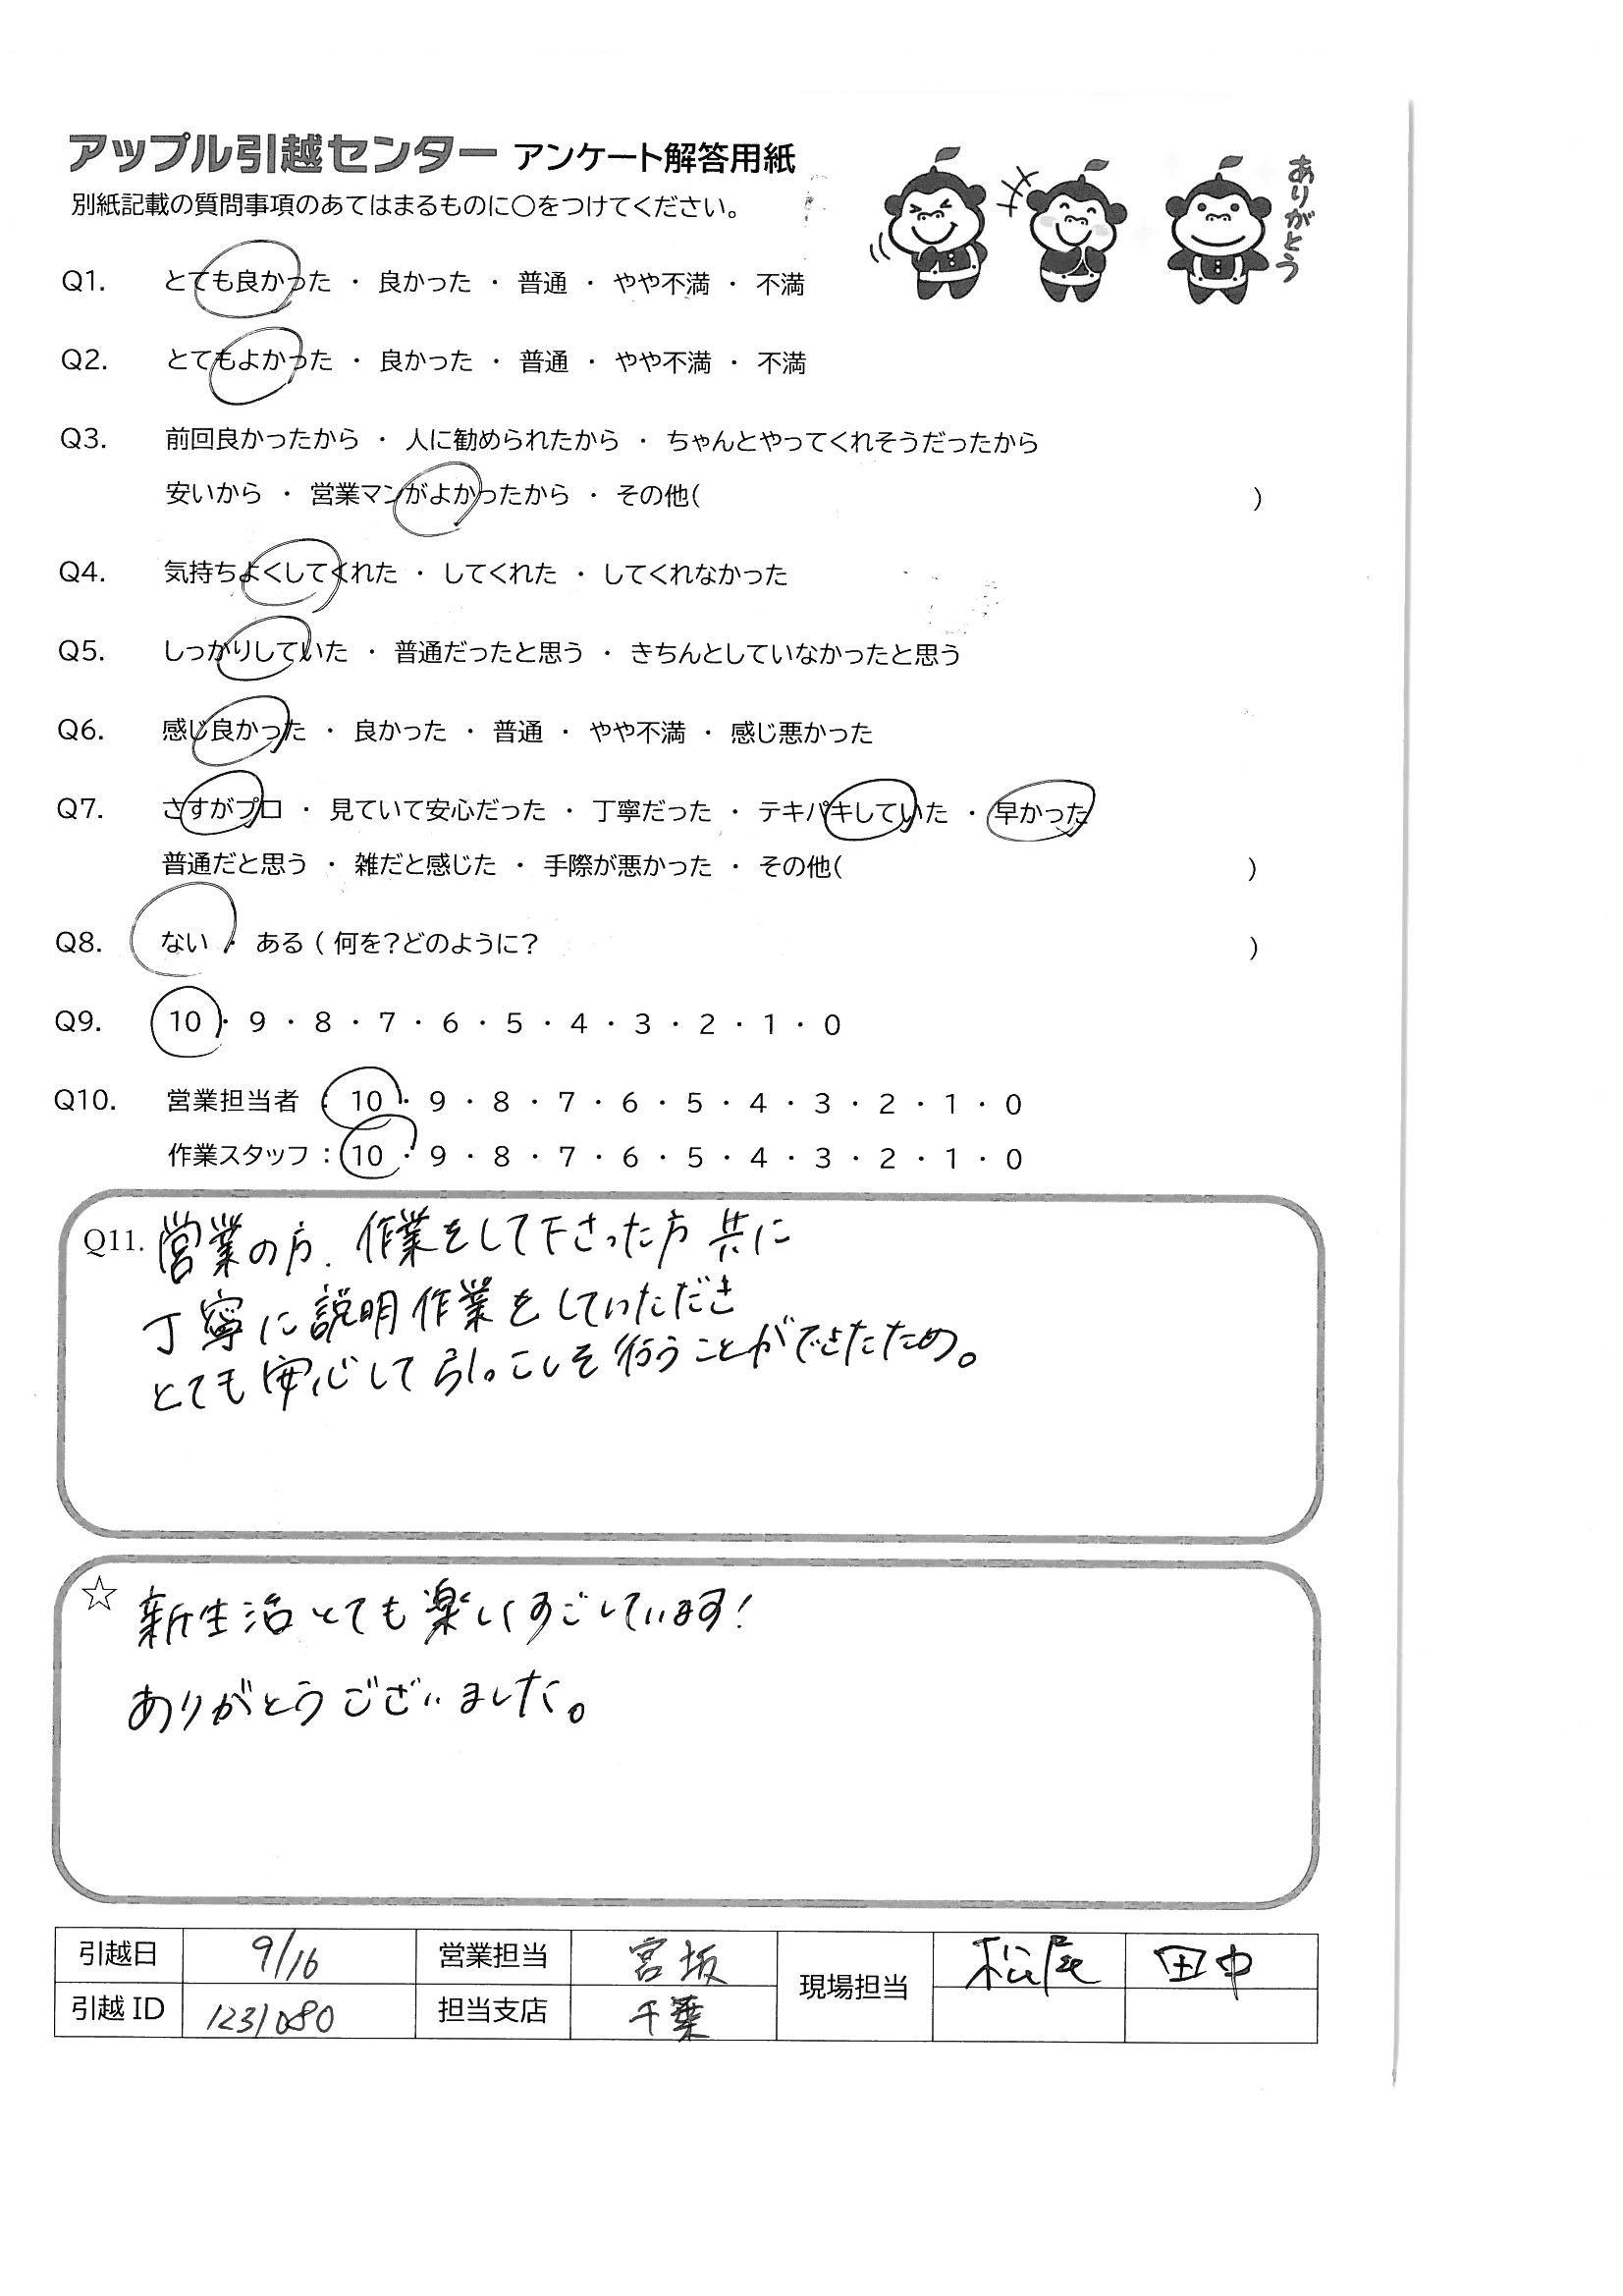 アップル引越センター アンケート解答用紙
別紙記載の質問事項のあてはまるものに○をつけてください。
ありがとう
Q1. とても良かった ・ 良かった ・ 普通 ・ やや不満 ・ 不満
Q2. とてもよかった ・ 良かった ・ 普通 ・ やや不満 ・ 不満
Q3. 前回良かったから ・ 人に勧められたから ・ ちゃんとやってくれそうだったから
安いから ・ 営業マンがよかったから ・ その他( )
Q4. 気持ちよくしてくれた ・ してくれた ・ してくれなかった
Q5. しっかりしていた ・ 普通だったと思う ・ きちんとしていなかったと思う
Q6. 感じ良かった ・ 良かった ・ 普通 ・ やや不満 ・ 感じ悪かった
Q7. さすがプロ ・ 見ていて安心だった ・ 丁寧だった ・ テキパキしていた ・ 早かった
普通だと思う ・ 雑だと感じた ・ 手際が悪かった ・ その他( )
Q8. ない ・ ある ( 何を?どのように? )
Q9. 10 ・ 9 ・ 8 ・ 7 ・ 6 ・ 5 ・ 4 ・ 3 ・ 2 ・ 1 ・ 0
Q10. 営業担当者 : 10 ・ 9 ・ 8 ・ 7 ・ 6 ・ 5 ・ 4 ・ 3 ・ 2 ・ 1 ・ 0
作業スタッフ : 10 ・ 9 ・ 8 ・ 7 ・ 6 ・ 5 ・ 4 ・ 3 ・ 2 ・ 1 ・ 0
Q11. 営業の方、作業をして下さった方 共に
丁寧に説明作業をしていただき
とても安心して引っこしを行うことができたため。
☆ 新生活とても楽しくすごしています!
ありがとうございました。
引越日 9/16 営業担当 宮坂 現場担当 松尾 田中
引越ID 1231080 担当支店 千葉